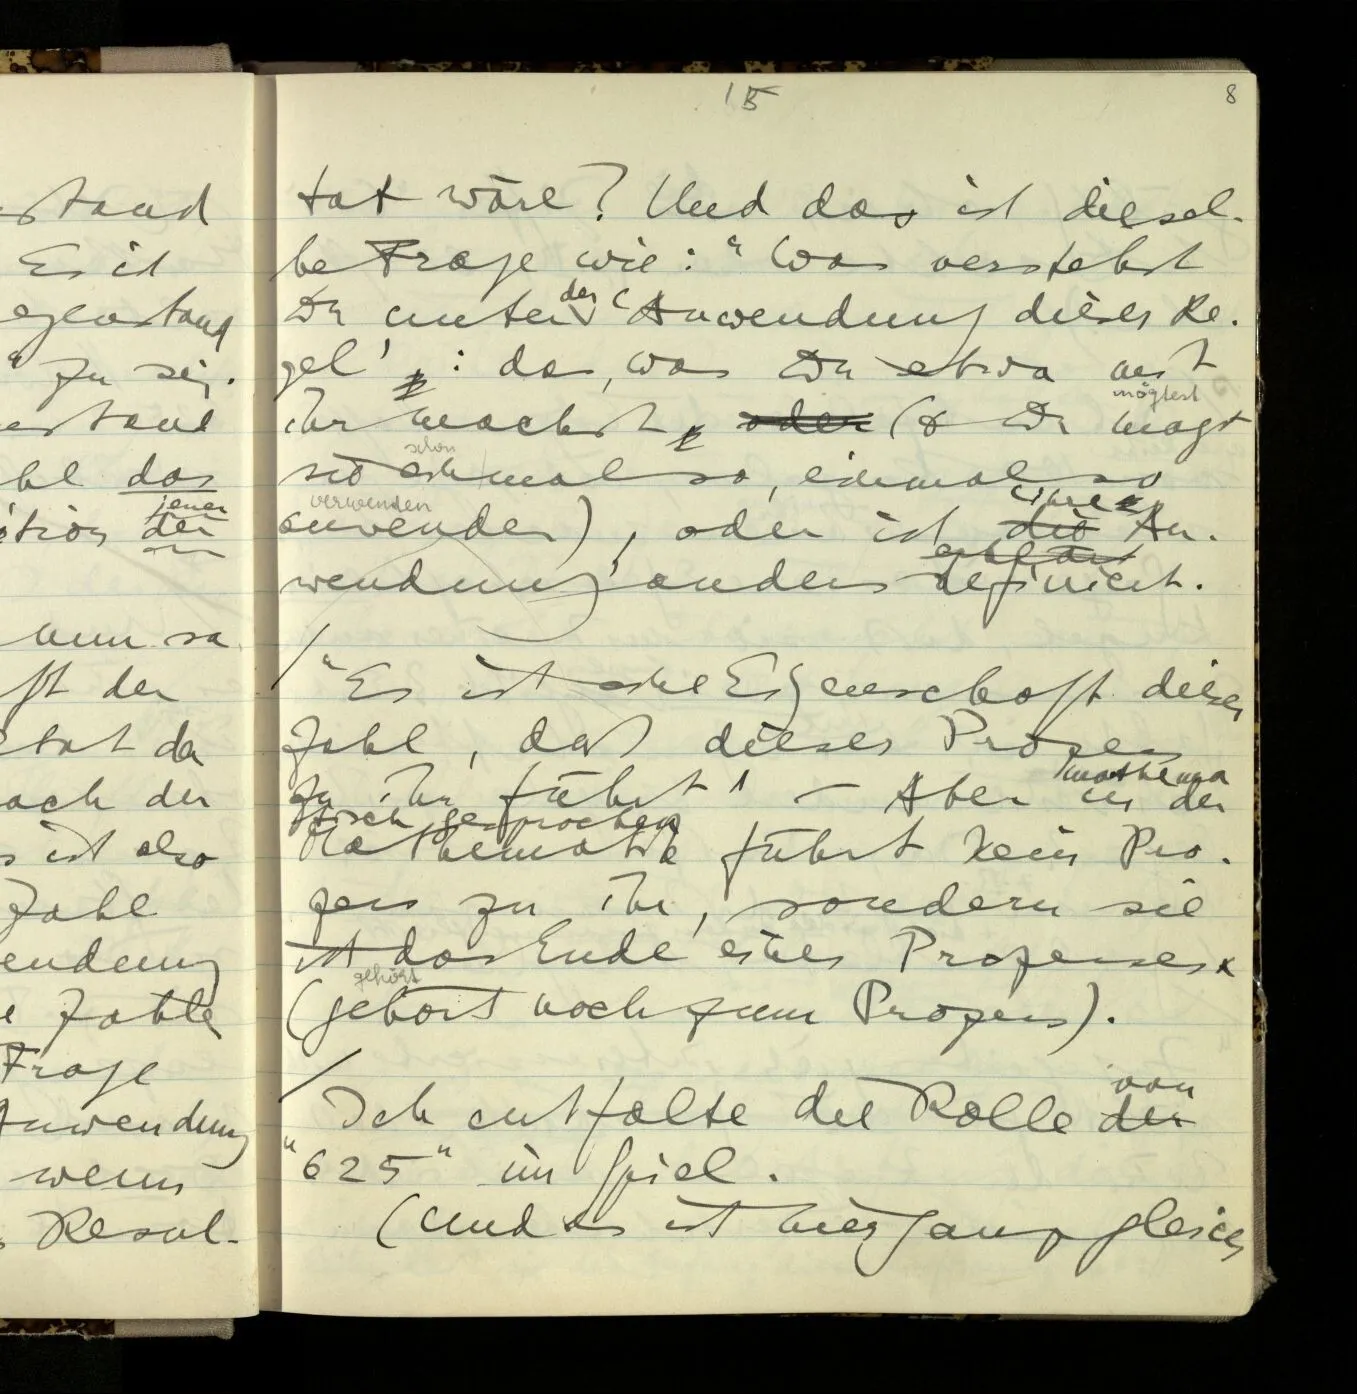 15
8
stand
Es ist
egenstand
" zu sein.
stand
hl das
jener
tion der
nun sa
ft der
tat der
ach der
s ist also
Zahl
endung
e Zahle
Frage
Anwendung
wenn
s Resul-
tat wäre? Und das ist diesel-
be Frage wie: "Was verstehst
der
Du unter 'Anwendung dieser Re-
gel': das, was Du etwa mit
mögtest
ihr machst, oder (& Du magst
schon
sie einmal so, einmal so
verwenden ihre
anwenden), oder ist die An-
wendung' anders definiert.
/ "Es ist eine Eigenschaft dieser
Zahl, daß dieser Prozess
mathema
zu ihr führt" – Aber in der
tisch gesprochen
Mathematik führt kein Pro-
zess zu ihr, sondern sie
ist das Ende eines Prozesses
gehört
(gehört noch zum Prozess).
von
/ Ich entfalte die Rolle der
"625" im Spiel.
(Und es ist hier ganz gleich